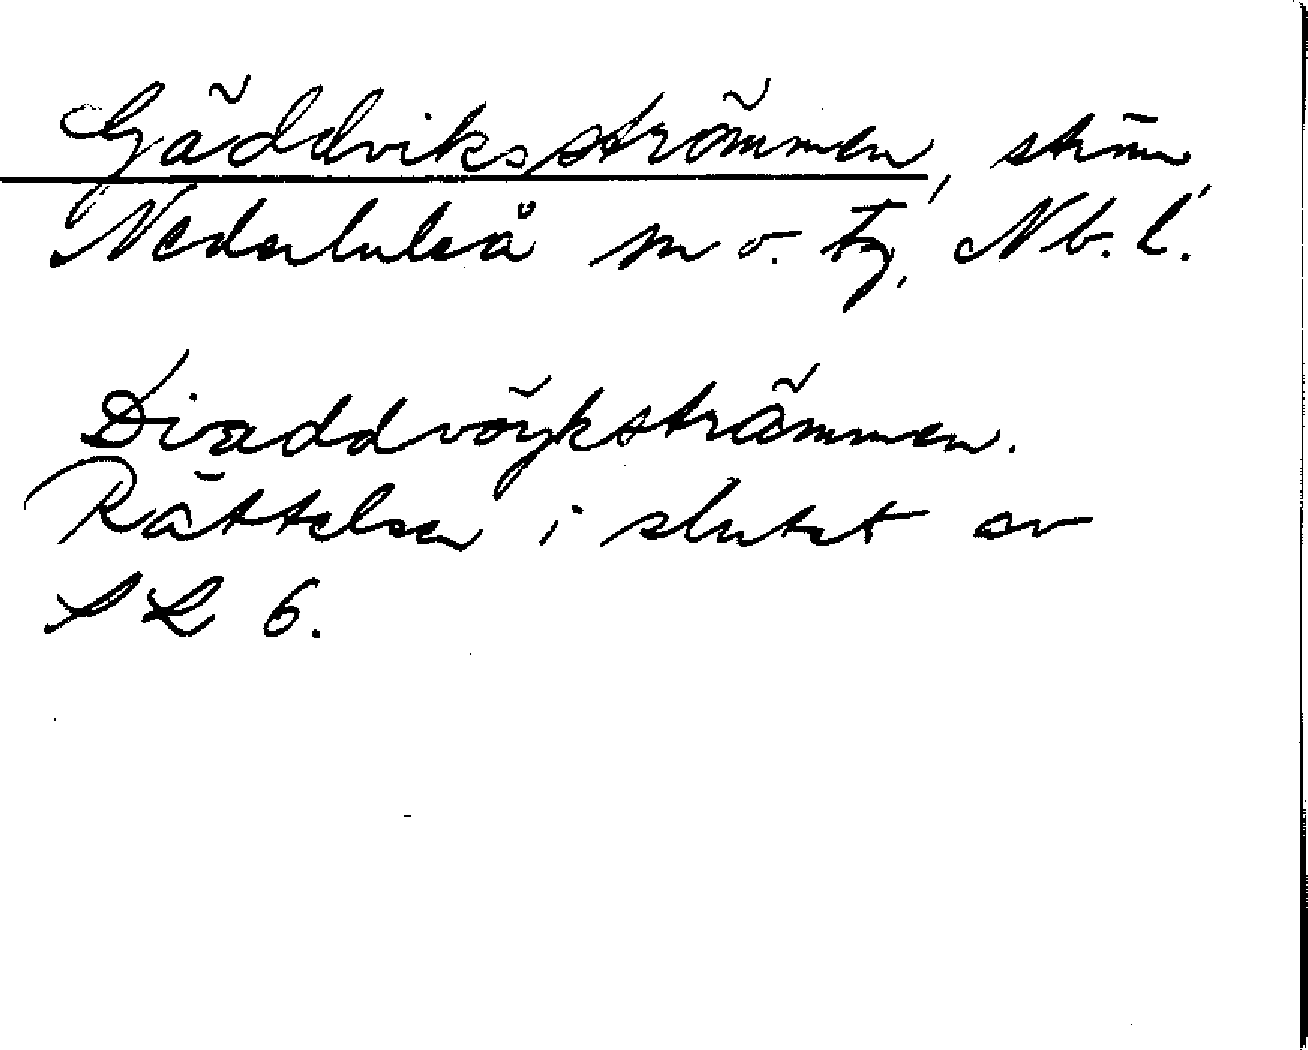 Gäddviksströmmen, ström,
Nederluleå sn o. tg, Nb. l.
Divaddvöykströmmen.
Rättelser i slutet av
SL 6.